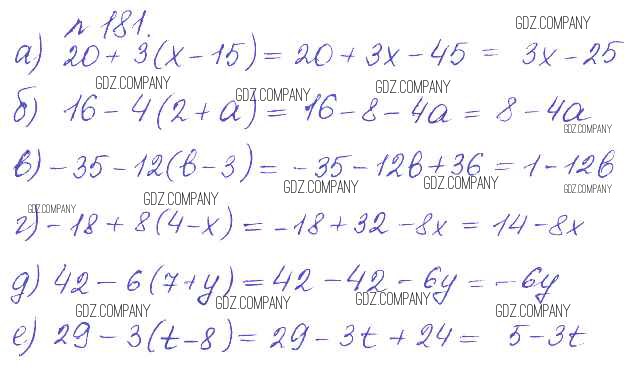 № 181.
GDZ.COMPANY
а) 20 + 3(x - 15) = 20 + 3x - 45 = 3x - 25
GDZ.COMPANY
GDZ.COMPANY
GDZ.COMPANY
б) 16 - 4(2 + a) = 16 - 8 - 4a = 8 - 4a
GDZ.COMPANY
в) - 35 - 12(b - 3) = - 35 - 12b + 36 = 1 - 12b
GDZ.COMPANY
GDZ.COMPANY
GDZ.COMPANY
GDZ.COMPANY
GDZ.COMPANY
г) - 18 + 8(4 - x) = - 18 + 32 - 8x = 14 - 8x
д) 42 - 6(7 + y) = 42 - 42 - 6y = - 6y
GDZ.COMPANY
GDZ.COMPANY
GDZ.COMPANY
GDZ.COMPANY
е) 29 - 3(t - 8) = 29 - 3t + 24 = 5 - 3t